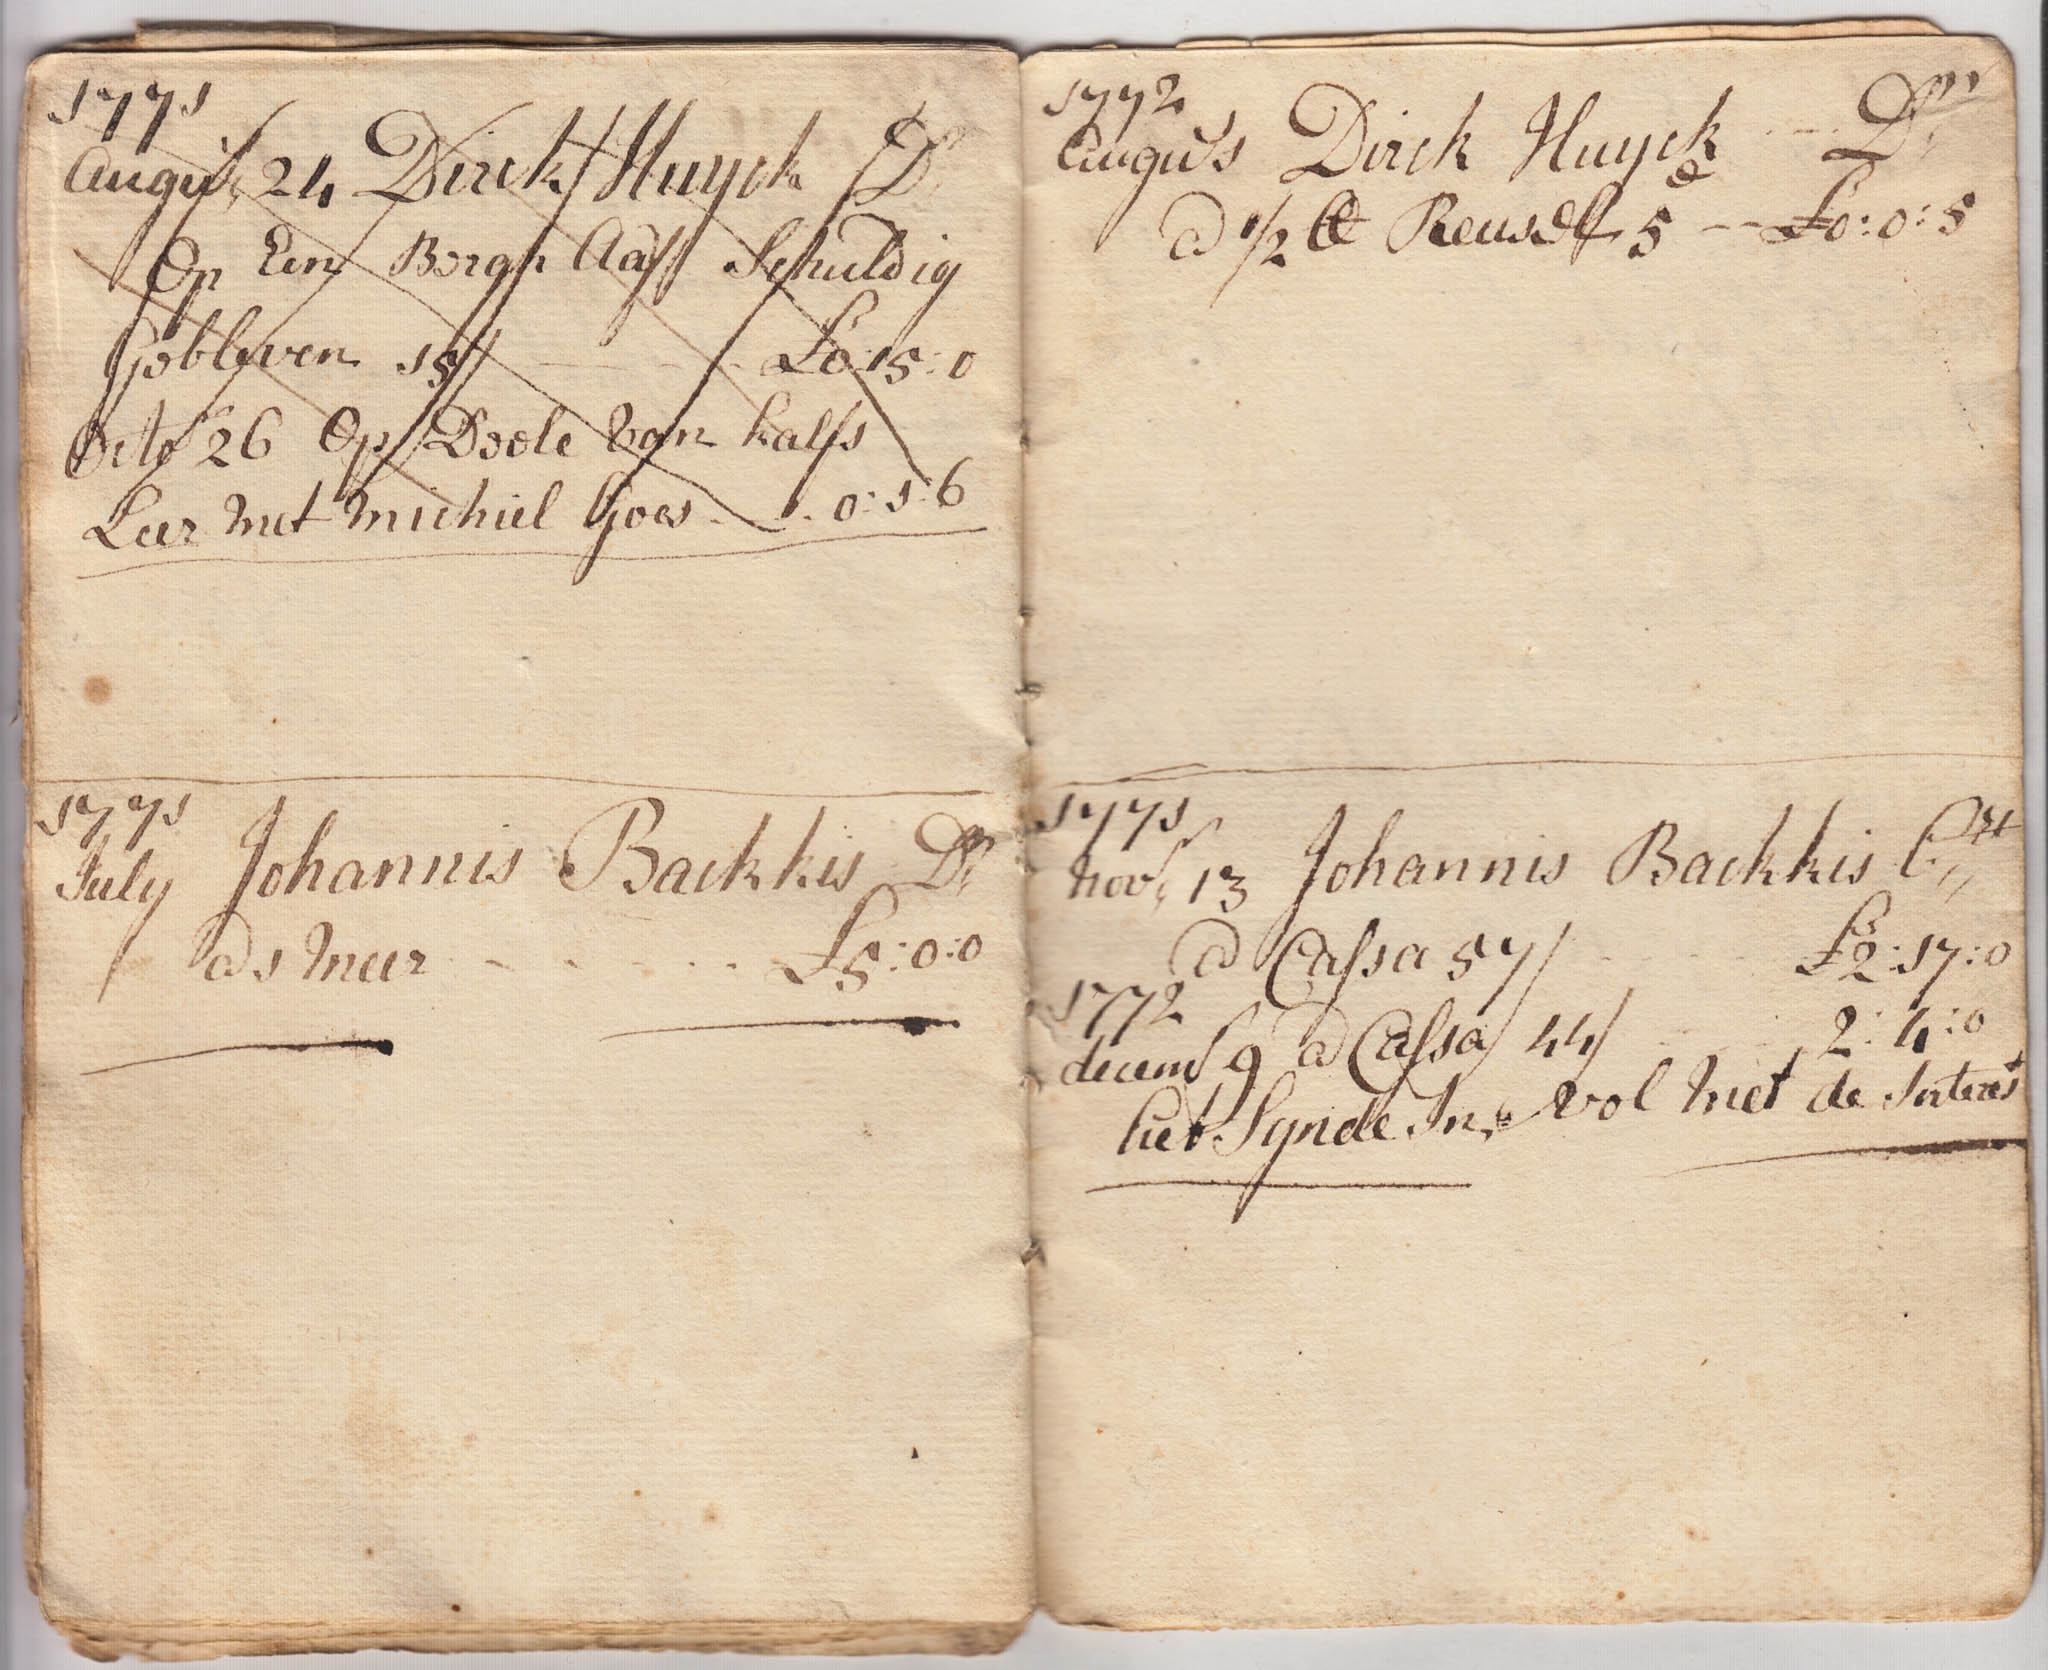 1771
August 24 Dirck Huyck Dr
Op Een Borgh Schuldig
Gebleven 15/ £0:15:0
Octo 26 Op Doele Van kalfs
Leer Met Michiel Goes 0:1:6
1771
July Johannis Backkis Dr
a 1 Meer £5:0:0
1772
Augus Dirck Huyck Dr
a 1/2 lb Reusel 5 d £0:0:5
1771
Nov 13 Johannis Backkis Crt
a Cassa 57/ £2:17:0
1772
decem 9 a Cassa 44/ 2:4:0
het Synde In Vol Met de Interest